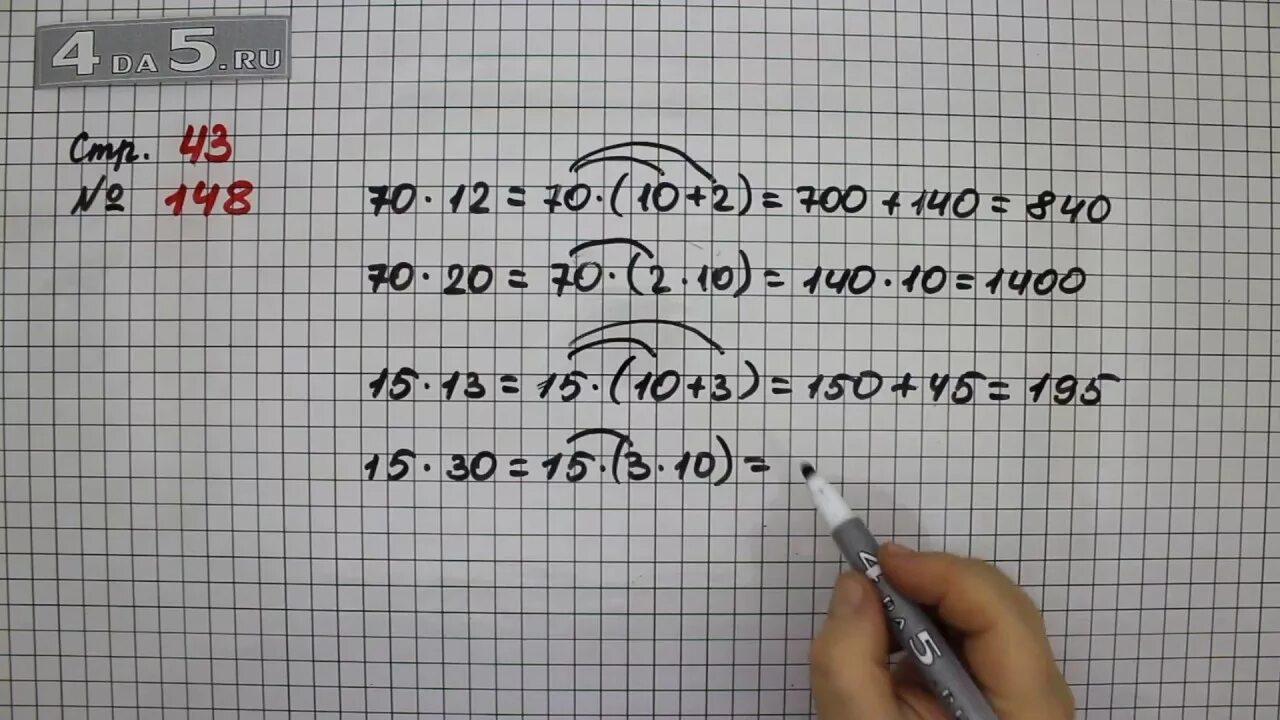 4 DA 5.RU
Стр. 43
№ 148
70 · 12 = 70 · (10 + 2) = 700 + 140 = 840
70 · 20 = 70 · (2 · 10) = 140 · 10 = 1400
15 · 13 = 15 · (10 + 3) = 150 + 45 = 195
15 · 30 = 15 · (3 · 10) =
4 DA 5